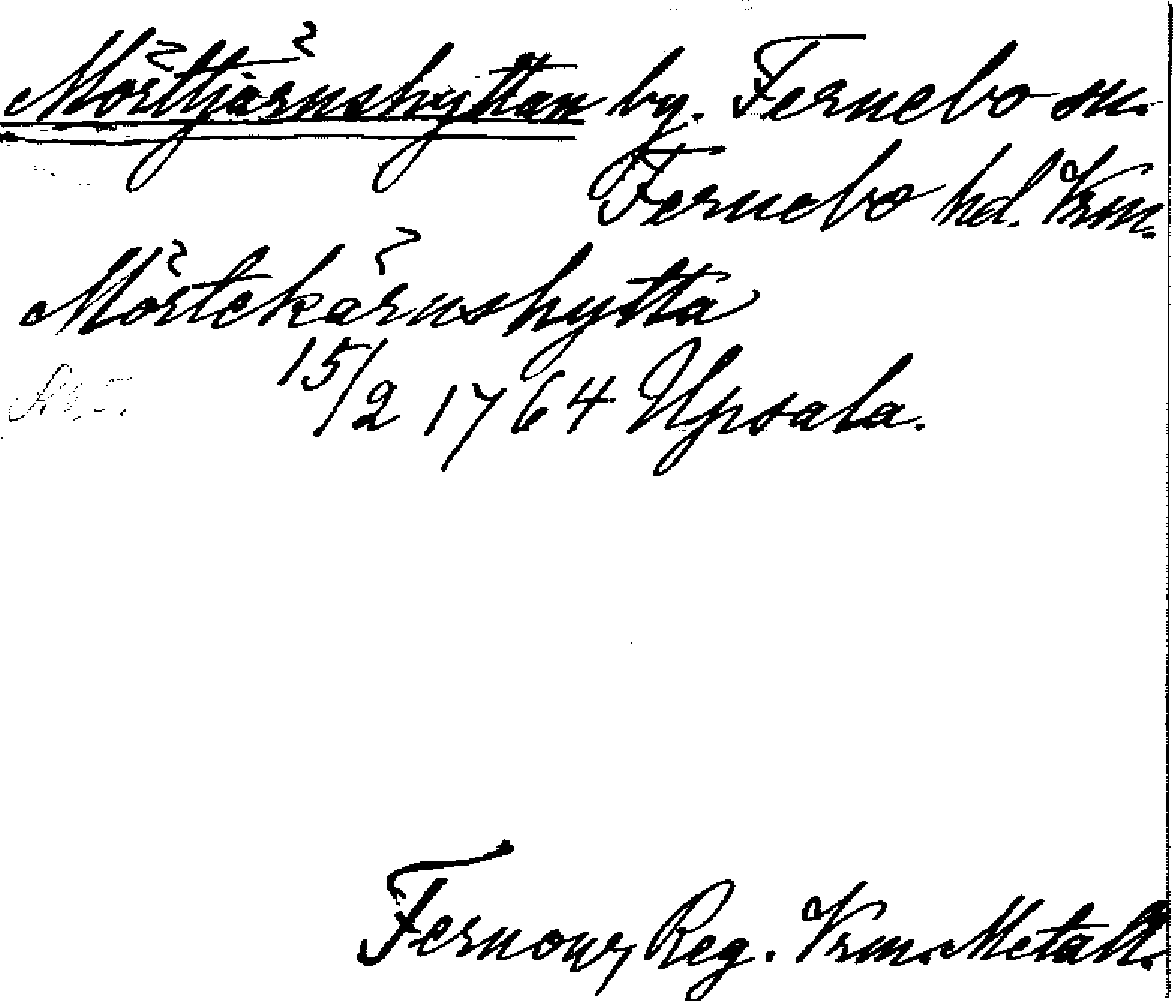 Mörttjärnshyttan by. Fernebo sn.
Fernebo hd. Vrm.
Mörtekärnshytta
15/2 1764 Upsala.
Fernow, Reg. Vrm. Metall.